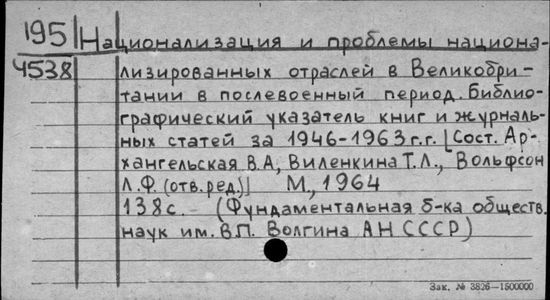 195 Национализация и проблемы национа-
4538 лизированных отраслей в Великобри-
тании в послевоенный период. Библио-
графический указатель книг и журналь-
ных статей за 1946-1963 г.г. [Сост. Ар-
хангельская В.А., Виленкина Т.Л., Вольфсон
Л.Ф. (отв. ред.)] М., 1964
138с. (Фундаментальная б-ка обществ.
наук им. В.П. Волгина АН СССР)
Зак. № 3826—1500000